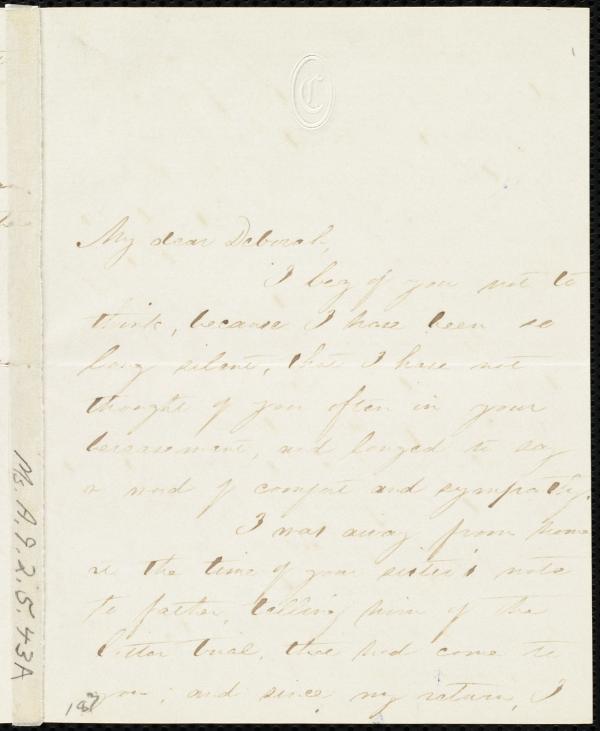 C
My dear Deborah,
I beg of you not to
think, because I have been so
long silent, that I have not
thought of you often in your
bereavement, and longed to say
a word of comfort and sympathy.
I was away from home
at the time of your sister's note
to father, telling him of the
bitter trial, that had come to
you; and since my return, I
Ms. A.9.2.5.43A